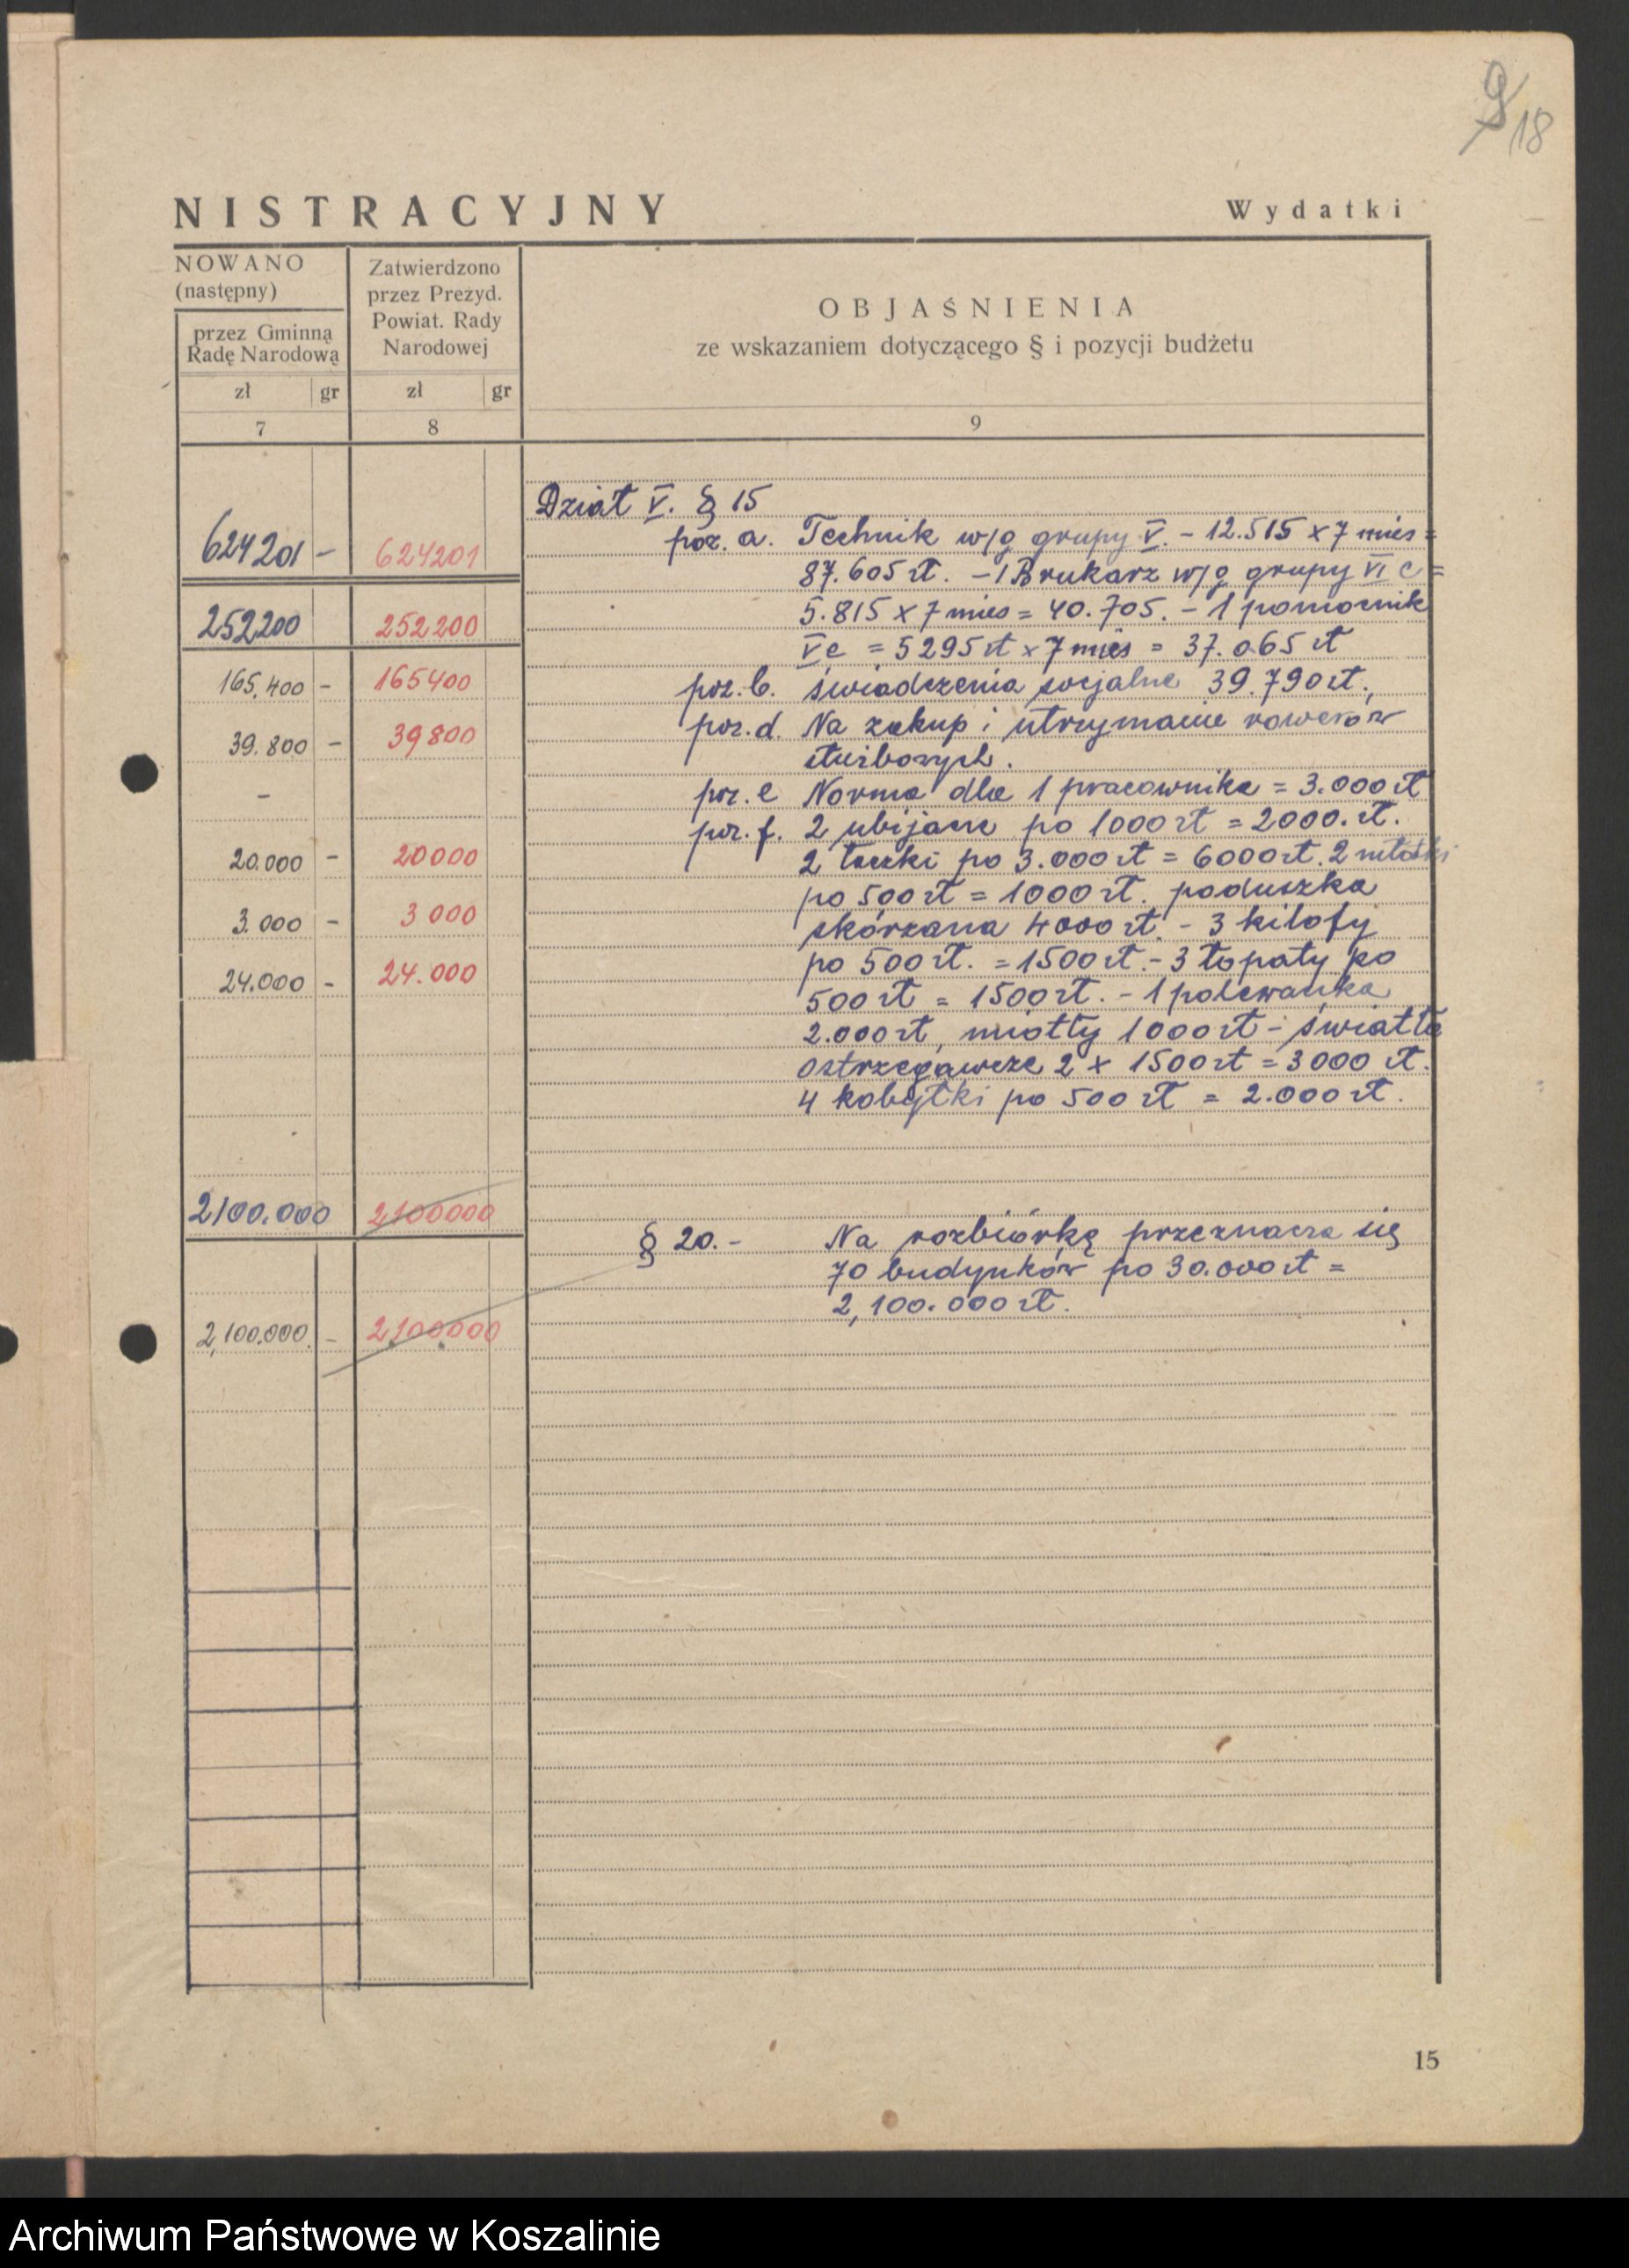 9 18
NISTRACYJNY
Wydatki
NOWANO
(następny)
przez Gminną
Radę Narodową
zł gr
7
Zatwierdzono
przez Prezyd.
Powiat. Rady
Narodowej
zł gr
8
OBJAŚNIENIA
ze wskazaniem dotyczącego § i pozycji budżetu
9
624201 - 624201
252200 252200
165.400 - 165400
39.800 - 39800
-
20.000 - 20000
3.000 - 3000
24.000 - 24.000
2100.000 2100000
2,100.000. - 2100000
Dział V. § 15
poz. a. Technik w/g grupy V. - 12.515 x 7 mies =
87.605 zł. - 1 Brukarz w/g grupy VI c =
5.815 x 7 mies = 40.705. - 1 pomocnik
V e = 5295 zł x 7 mies = 37.065 zł
poz. b. świadczenia socjalne 39.790 zł.,
poz. d. Na zakup i utrzymanie rowerów
służbowych.
poz. e Norma dla 1 pracownika = 3.000 zł
poz. f. 2 ubijane po 1000 zł = 2000. zł.
2 taczki po 3.000 zł = 6000 zł. 2 młotki
po 500 zł = 1000 zł. poduszka
skórzana 4000 zł. - 3 kilofy
po 500 zł. = 1500 zł. - 3 łopaty po
500 zł = 1500 zł. - 1 polewanka
2.000 zł, miotły 1000 zł - światła
ostrzegawcze 2 x 1500 zł = 3000 zł.
4 kobyłki po 500 zł = 2.000 zł.
§ 20. - Na rozbiórkę przeznacza się
70 budynków po 30.000 zł =
2,100.000 zł.
15
Archiwum Państwowe w Koszalinie